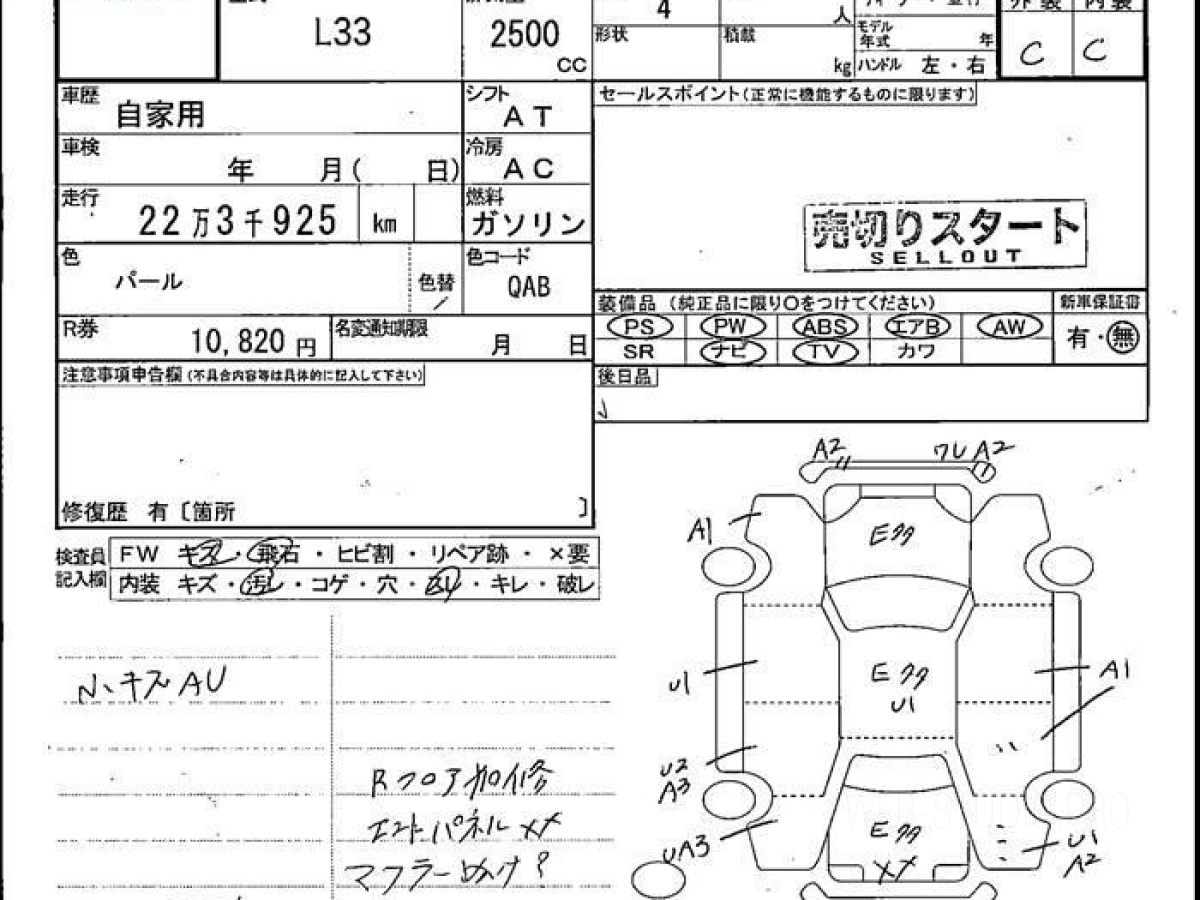 L33
2500
CC
4
人
モデル
年式
年
形状
積載
kg
ハンドル 左・右
C
C
車歴
自家用
シフト
AT
セールスポイント(正常に機能するものに限ります)
車検
年 月( 日)
冷房
AC
走行
22万3千925 km
燃料
ガソリン
売切りスタート
SELLOUT
色
パール
色替
色コード
QAB
装備品 (純正品に限り〇をつけてください)
新車保証書
PS PW ABS エアB AW
SR ナビ TV カワ
有・無
R券
10,820 円
名変通知期限
月 日
後日品
注意事項申告欄(不具合内容等は具体的に記入して下さい)
修復歴 有〔箇所 〕
検査員
記入欄
FW キズ・飛石・ヒビ割・リペア跡・×要
内装 キズ・汚レ・コゲ・穴・・キレ・破レ
小キズAU
Rフロア加修
エンドパネルXX
マフラーぬけ?
A2
ワレ A2
A1
E
U1
E
U1
A1
U2
A3
UA3
E
XX
U1
A2